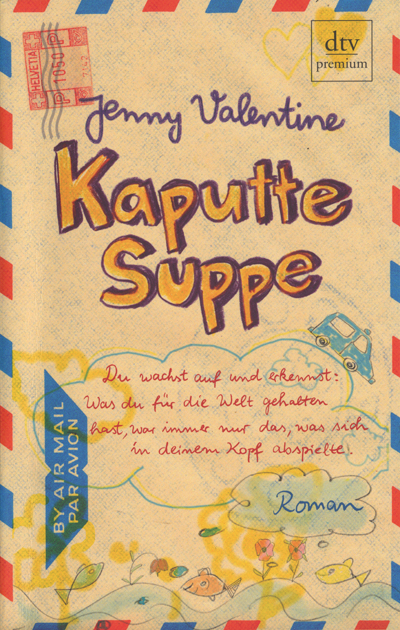 HELVETIA
P 1050 P
dtv
premium
Jenny Valentine
Kaputte
Suppe
Du wachst auf und erkennst:
Was du für die Welt gehalten
hast, war immer nur das, was sich
in deinem Kopf abspielte.
BY AIR MAIL
PAR AVION
Roman